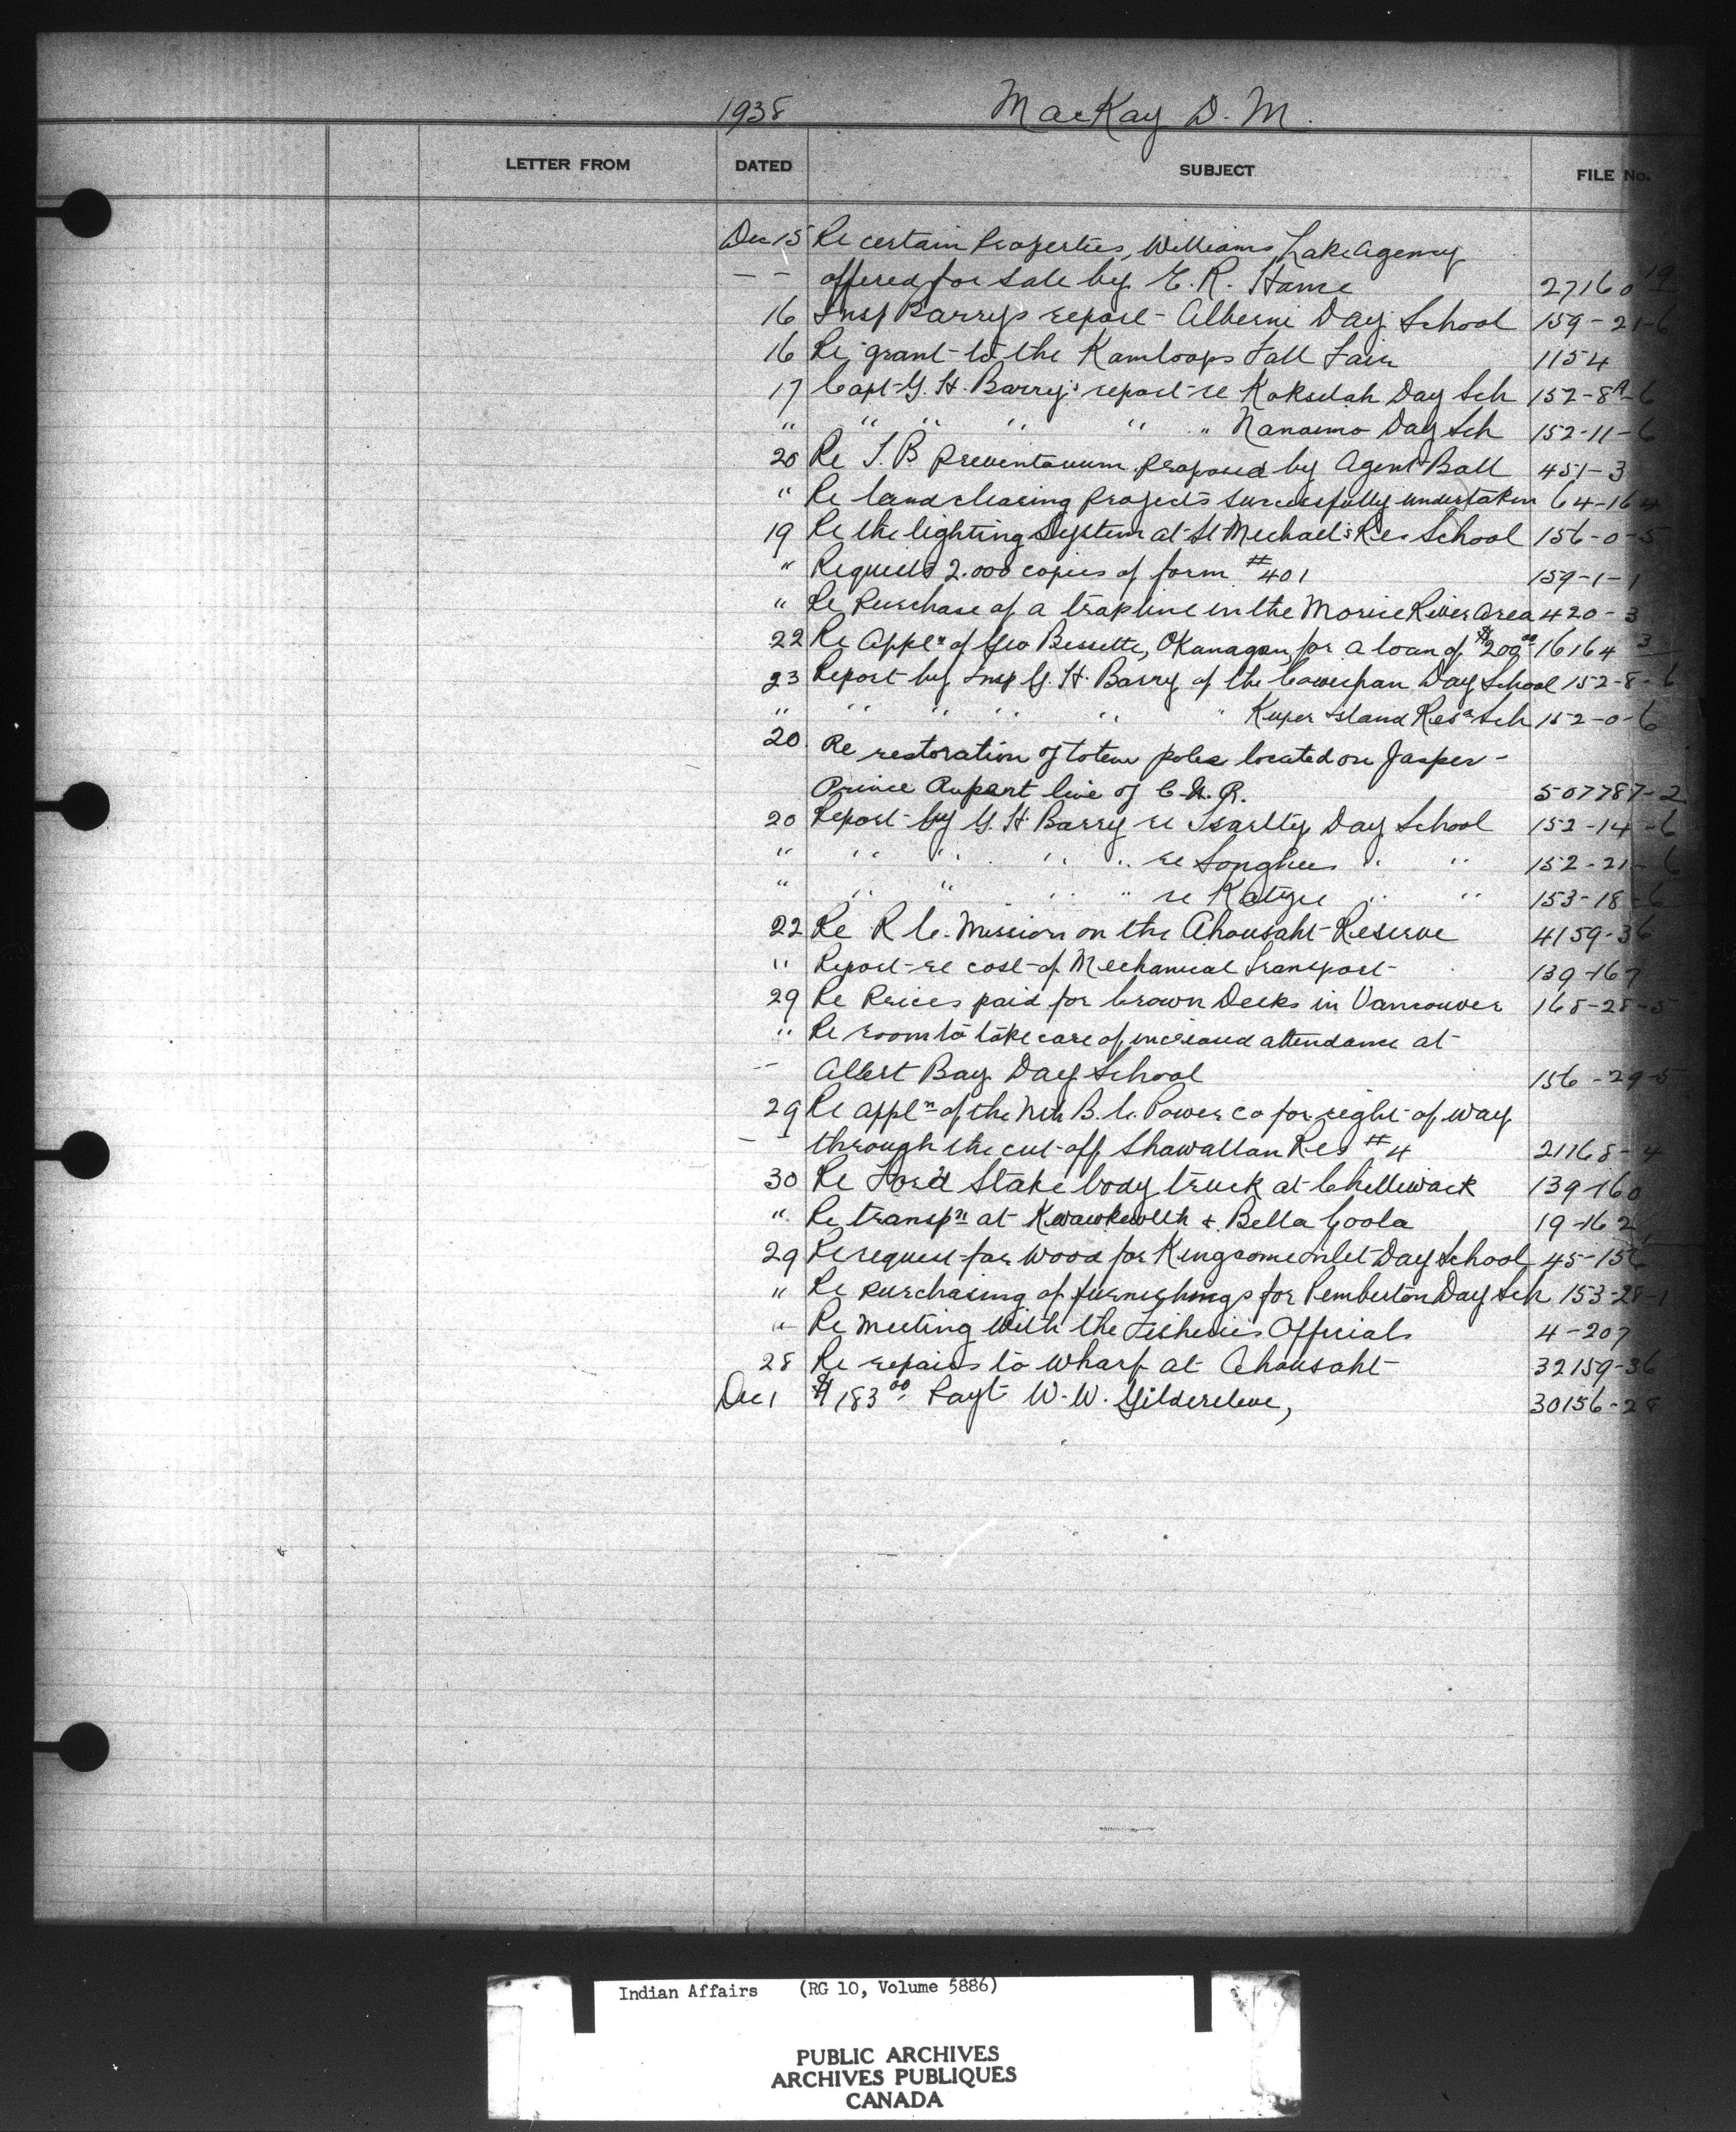 1938 MacKay D. M.
LETTER FROM DATED SUBJECT FILE No.
Dec 15 Re certain Properties, Williams Lake Agency
— — offered for sale by E. R. Hame 27160 19
16 Insp Barrys report - Alberni Day School 159-21-6
16 Re grant to the Kamloops Fall Fair 1154
17 Capt G. H. Barry's report re Koksilah Day Sch 152-8A-6
" " " " " " Nanaimo Day Sch 152-11-6
20 Re T. B. Preventorium proposed by Agent Ball 451-3
" Re land clearing projects successfully undertaken 64-164
19 Re the lighting System at St Michael's Res School 156-0-5
" Requires 2.000 copies of form #401 159-1-1
" Re Purchase of a trapline in the Morice River Area 420-3
22 Re Appln of Geo Bessette, Okanagan, for a loan of $200 00 16164 3
23 Report by Insp G. H. Barry of the Cowichan Day School 152-8-6
" " " " " " Kuper Island Res Sch 152-0-6
20 Re restoration of totem poles located on Jasper -
Prince Rupert line of C. N. R. 507787-2
20 Report by G. H. Barry re Tsartly Day School 152-14-6
" " " " " re Songhees " " 152-21-6
" " " " " re Katzie " " 153-18-6
22 Re R C. Mission on the Ahousaht Reserve 4159-36
" Report re cost of Mechanical Transport 139-167
29 Re Prices paid for brown Decks in Vancouver 168-28-5
" Re room to take care of increased attendance at
— Albert Bay Day School 156-29-5
29 Re appln of the Nth B. C. Power Co for right of way
— — through the cut-off Shawatlan Res #4 21168-4
30 Re Ford Stake body truck at Chilliwack 139-160
" Re transpn at Kwawkewlth & Bella Coola 19-162
29 Re request for wood for Kingcome inlet Day School 45-156
" Re purchasing of furnishings for Pemberton Day Sch 153-28-1
" Re meeting with the Fisheries Officials 4-207
28 Re repairs to wharf at Ahousaht 32159-36
Dec 1 $183 00 Payt W. W. Gildersleve, 30156-28
Indian Affairs (RG 10, Volume 5886)
PUBLIC ARCHIVES
ARCHIVES PUBLIQUES
CANADA